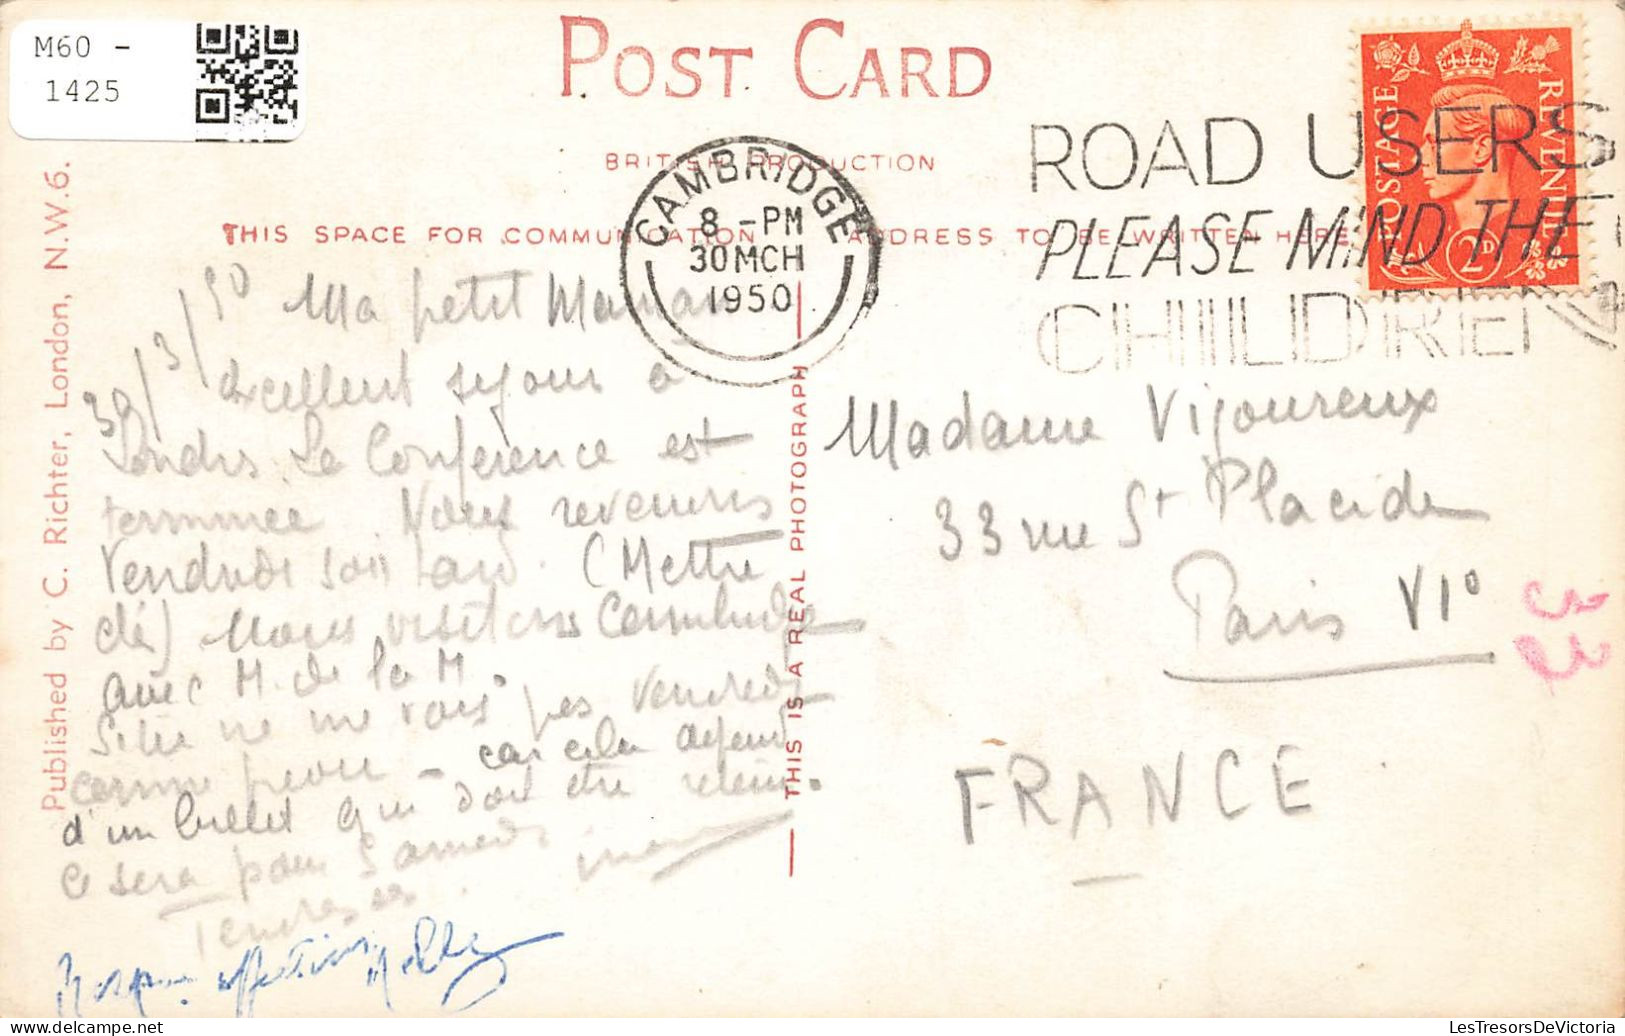 M60 -
1425
POST CARD
BRITISH PRODUCTION
THIS SPACE FOR COMMUNICATION
ADDRESS TO BE WRITTEN HERE
CAMBRIDGE
8 - PM
30 MCH
1950
ROAD USERS
PLEASE MIND THE
CHILDREN
POSTAGE
REVENUE
2D
Published by C. Richter, London, N.W.6.
THIS IS A REAL PHOTOGRAPH
30/3/50 Ma petit Maman
Excellent sejour a
Londres. La Conférence est
terminée Nous revenons
Vendredi soir tard. (Mettre
clé) Nous visitons Cambridge
avec M. de la M.
ne me vois pas Vendredi
comme prevu - car cela depend
d'un billet qui doit être
Ce sera pour Samedi
Tendresses
Madame Vigoureux
33 rue St Placide
Paris VI°
FRANCE
33
LesTresorsDeVictoria